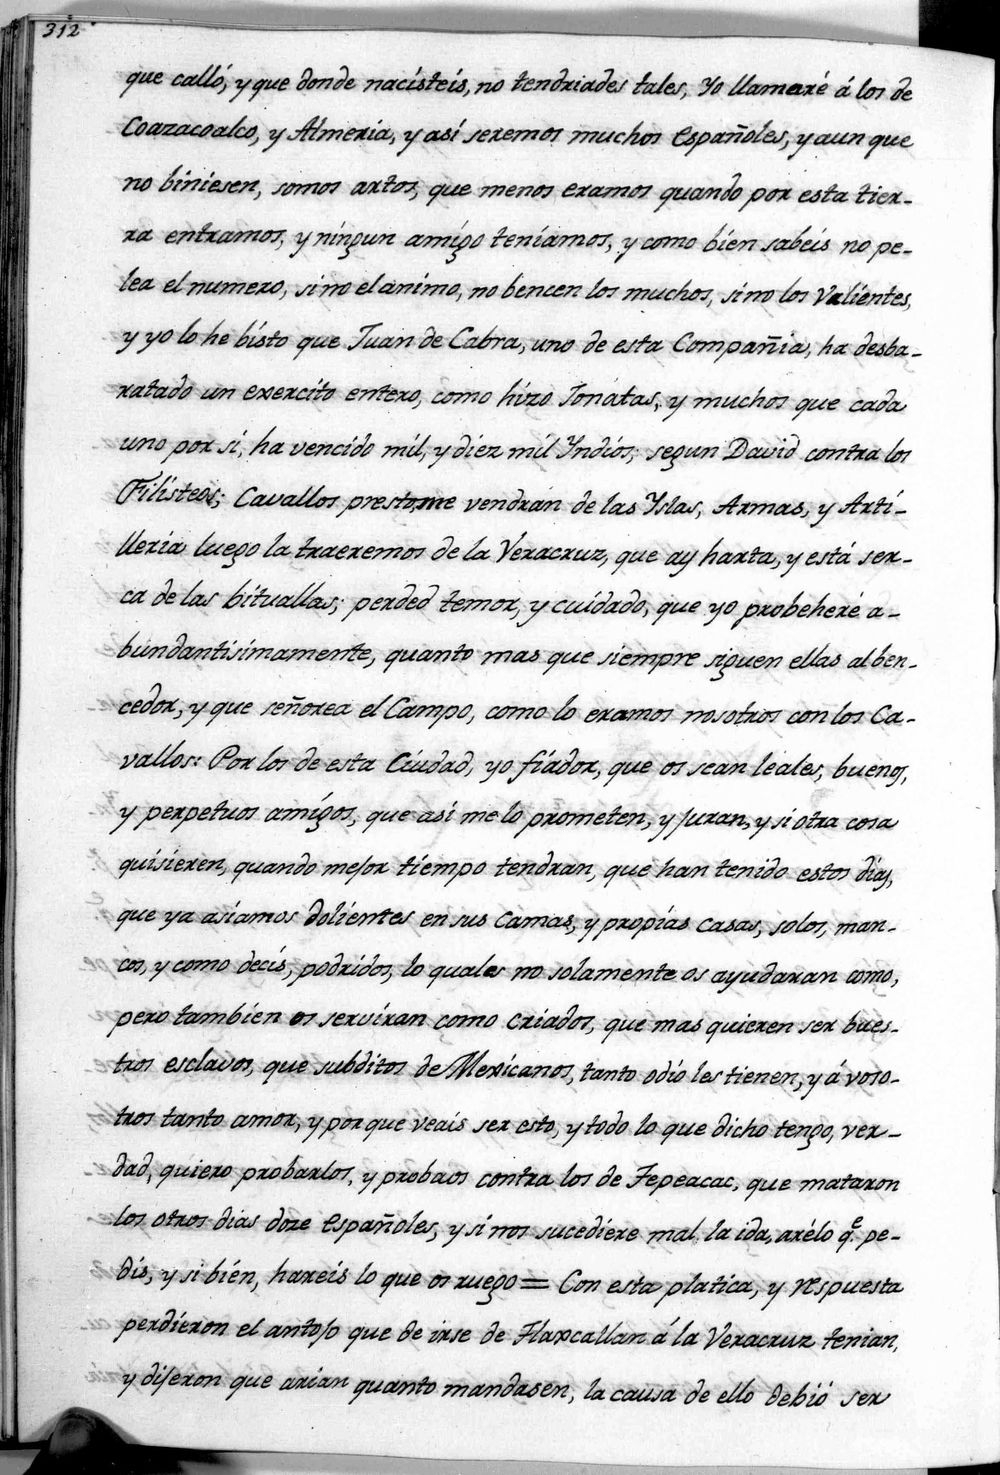 312
que calló, y que donde nacísteis, no tendriades tales, Yo llamaré á los de
Coazacoalco, y Almeria, y así seremos muchos Españoles, y aun que
no biniesen, somos artos, que menos eramos quando por esta tier-
ra entramos, y ningun amigo teníamos, y como bien sabeis no pe-
lea el numero, sino el ánimo, no bencen los muchos, sino los Valientes,
y yo lo he bísto que Juan de Cabra, uno de esta Compañia, ha desba-
ratado un exercito entero, como hizo Jonátas, y muchos que cada
uno por si, ha vencido mil, y diez mil Yndios, segun David contra los
Filísteos; Cavallos prestome vendrán de las Yslas, Armas, y Arti-
lleria luego la traeremos de la Veracruz, que ay harta, y está ser-
ca de las bituallas; perded temor, y cuidado, que yo probeheré a-
bundantisimamente, quanto mas que siempre siguen ellas al ben-
cedor, y que señorea el Campo, como lo eramos nosotros con los Ca-
vallos: Por los de esta Ciudad, yo fiador, que os sean leales, buenos,
y perpetuos amigos, que así me lo prometen, y juran, y si otra cosa
quisieren, quando mejor tiempo tendran, que han tenido estos días,
que ya asíamos dolientes en sus Camas, y propías casas, solos, man-
cos, y como decís, podridos, lo quales no solamente os ayudaran como,
pero tambien os serviran como criados, que mas quieren ser bues-
tros esclavos, que subditos de Mexicanos, tanto odio les tienen, y á voso-
tros tanto amor, y por que veais ser esto, y todo lo que dicho tengo, ver-
dad, quiero probarlos, y probaos contra los de Tepeacac, que mataron
los otros dias doze Españoles, y si nos sucediere mal la ida, arélo q.e pe-
dis, y si bién, hareis lo que os ruego = Con esta platica, y respuesta
perdieron el antojo que de irse de Tlaxcallan á la Veracruz tenian,
y dijeron que arian quanto mandasen, la causa de ello debió ser